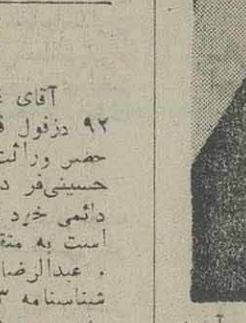 آقای
۹۲ دزفول
حصر وراثت
حسینی‌فر د
دائمی خود
است به
. عبدالرضا
شناسنامه ۳